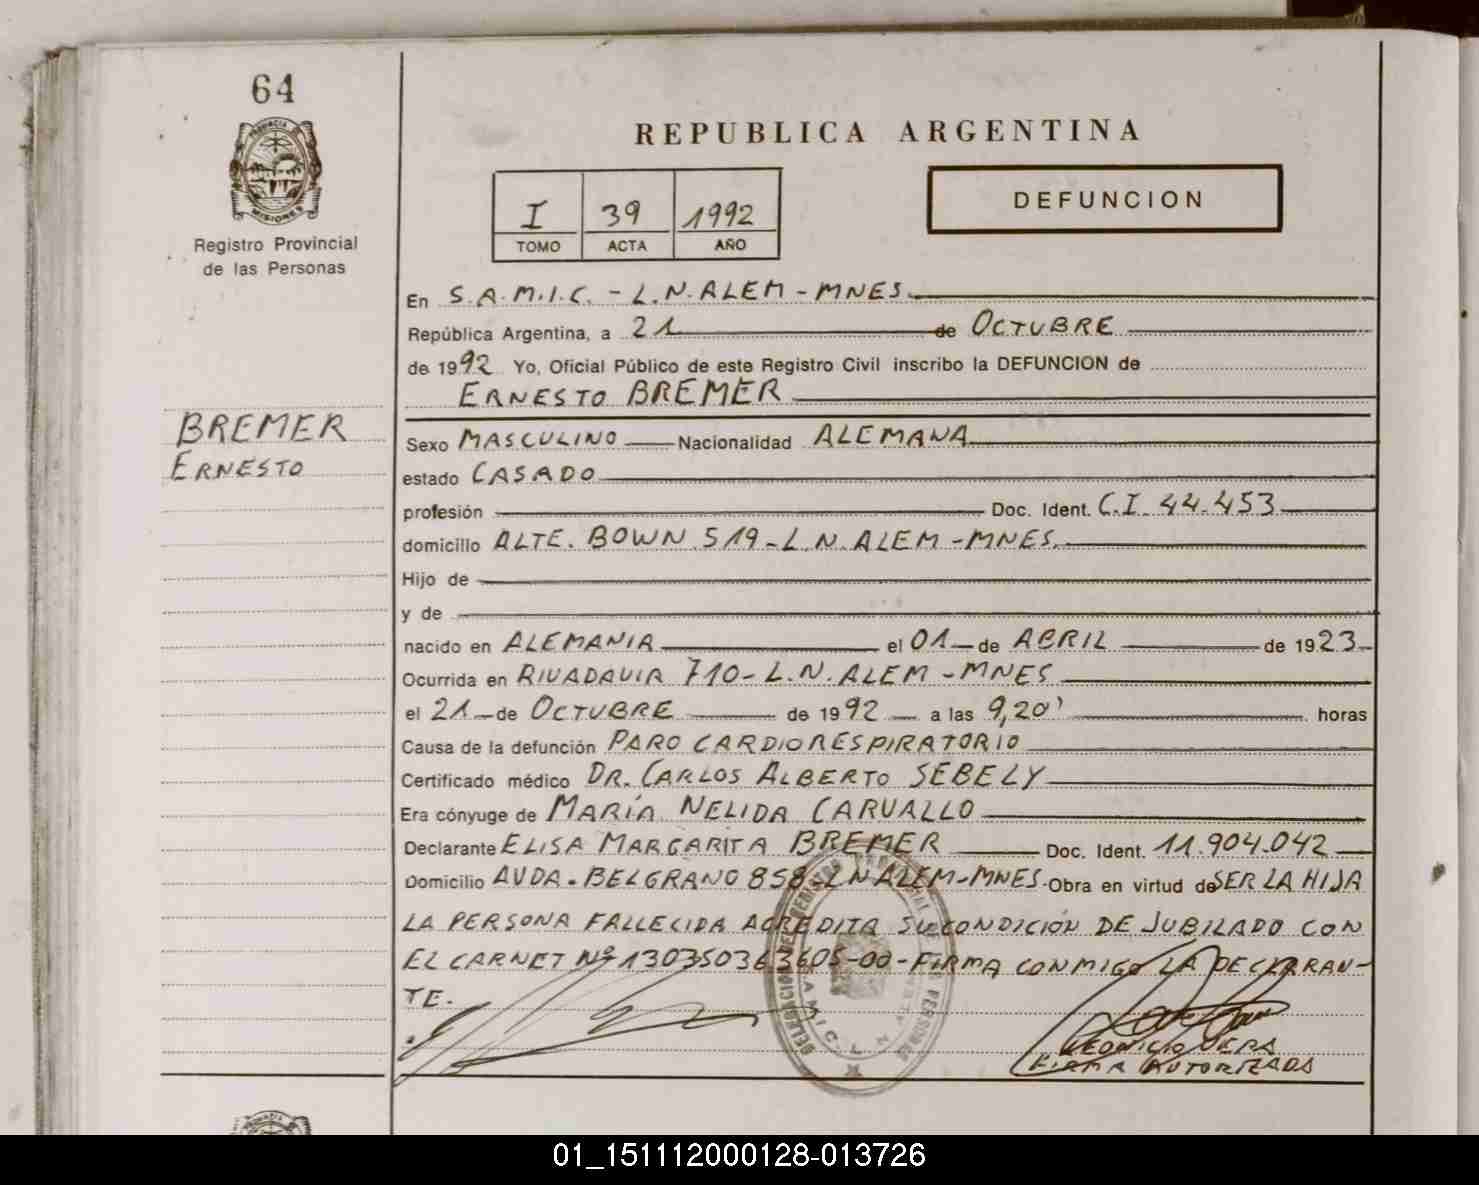 64
PROVINCIA DE
MISIONES
Registro Provincial
de las Personas
BREMER
ERNESTO
REPUBLICA ARGENTINA
I 39 1992
TOMO ACTA AÑO
DEFUNCION
En S.A.M.I.C. - L.N. ALEM - MNES.
República Argentina, a 21 de OCTUBRE
de 1992 Yo, Oficial Público de este Registro Civil inscribo la DEFUNCION de
ERNESTO BREMER
Sexo MASCULINO Nacionalidad ALEMANA
estado CASADO
profesión Doc. Ident. C.I. 44.453
domicilio ALTE. BOWN 519 - L.N. ALEM - MNES.
Hijo de
y de
nacido en ALEMANIA el 01 de ABRIL de 1923
Ocurrida en RIVADAVIA 710 - L.N. ALEM - MNES
el 21 de OCTUBRE de 1992 a las 9,20' horas
Causa de la defunción PARO CARDIORESPIRATORIO
Certificado médico DR. CARLOS ALBERTO SEBELY
Era cónyuge de MARÍA NELIDA CARVALLO
Declarante ELISA MARGARITA BREMER Doc. Ident. 11.904.042
Domicilio AVDA. BELGRANO 858 - L N ALEM - MNES. Obra en virtud de SER LA HIJA
LA PERSONA FALLECIDA ACREDITA SU CONDICIÓN DE JUBILADO CON
EL CARNET Nº 130350363605-00 - FIRMA CONMIGO LA DECLARAN-
TE.
FIRMA AUTORIZADA
01_151112000128-013726